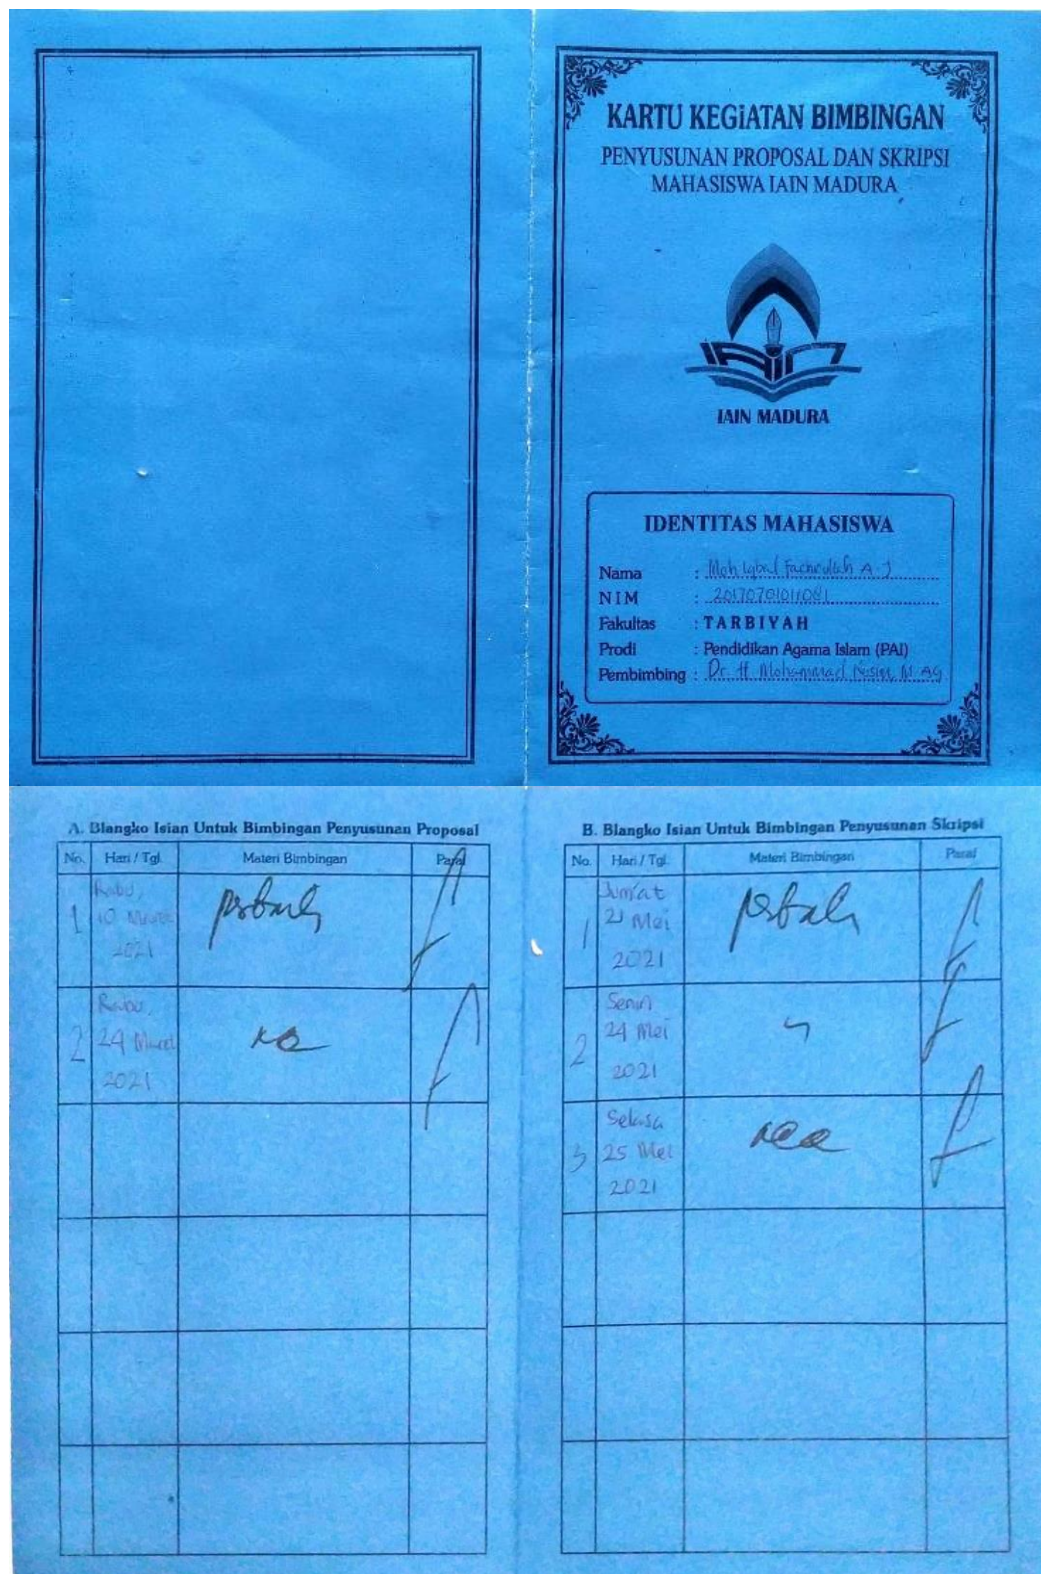 KARTU KEGIATAN BIMBINGAN
PENYUSUNAN PROPOSAL DAN SKRIPSI
MAHASISWA IAIN MADURA
IAIN
IAIN MADURA
IDENTITAS MAHASISWA
Nama : Moh Iqbal Fachrullah A.J
NIM : 20170701011081
Fakultas : TARBIYAH
Prodi : Pendidikan Agama Islam (PAI)
Pembimbing : Dr. H. Mohammad M. AG
A. Blangko Isian Untuk Bimbingan Penyusunan Proposal
No. Hari / Tgl. Materi Bimbingan Paraf
1 Rabu, 10 Maret 2021
2 Rabu, 24 Maret 2021
B. Blangko Isian Untuk Bimbingan Penyusunan Skripsi
No. Hari / Tgl. Materi Bimbingan Paraf
1 Jum'at 21 Mei 2021
2 Senin 24 Mei 2021
3 Selasa 25 Mei 2021